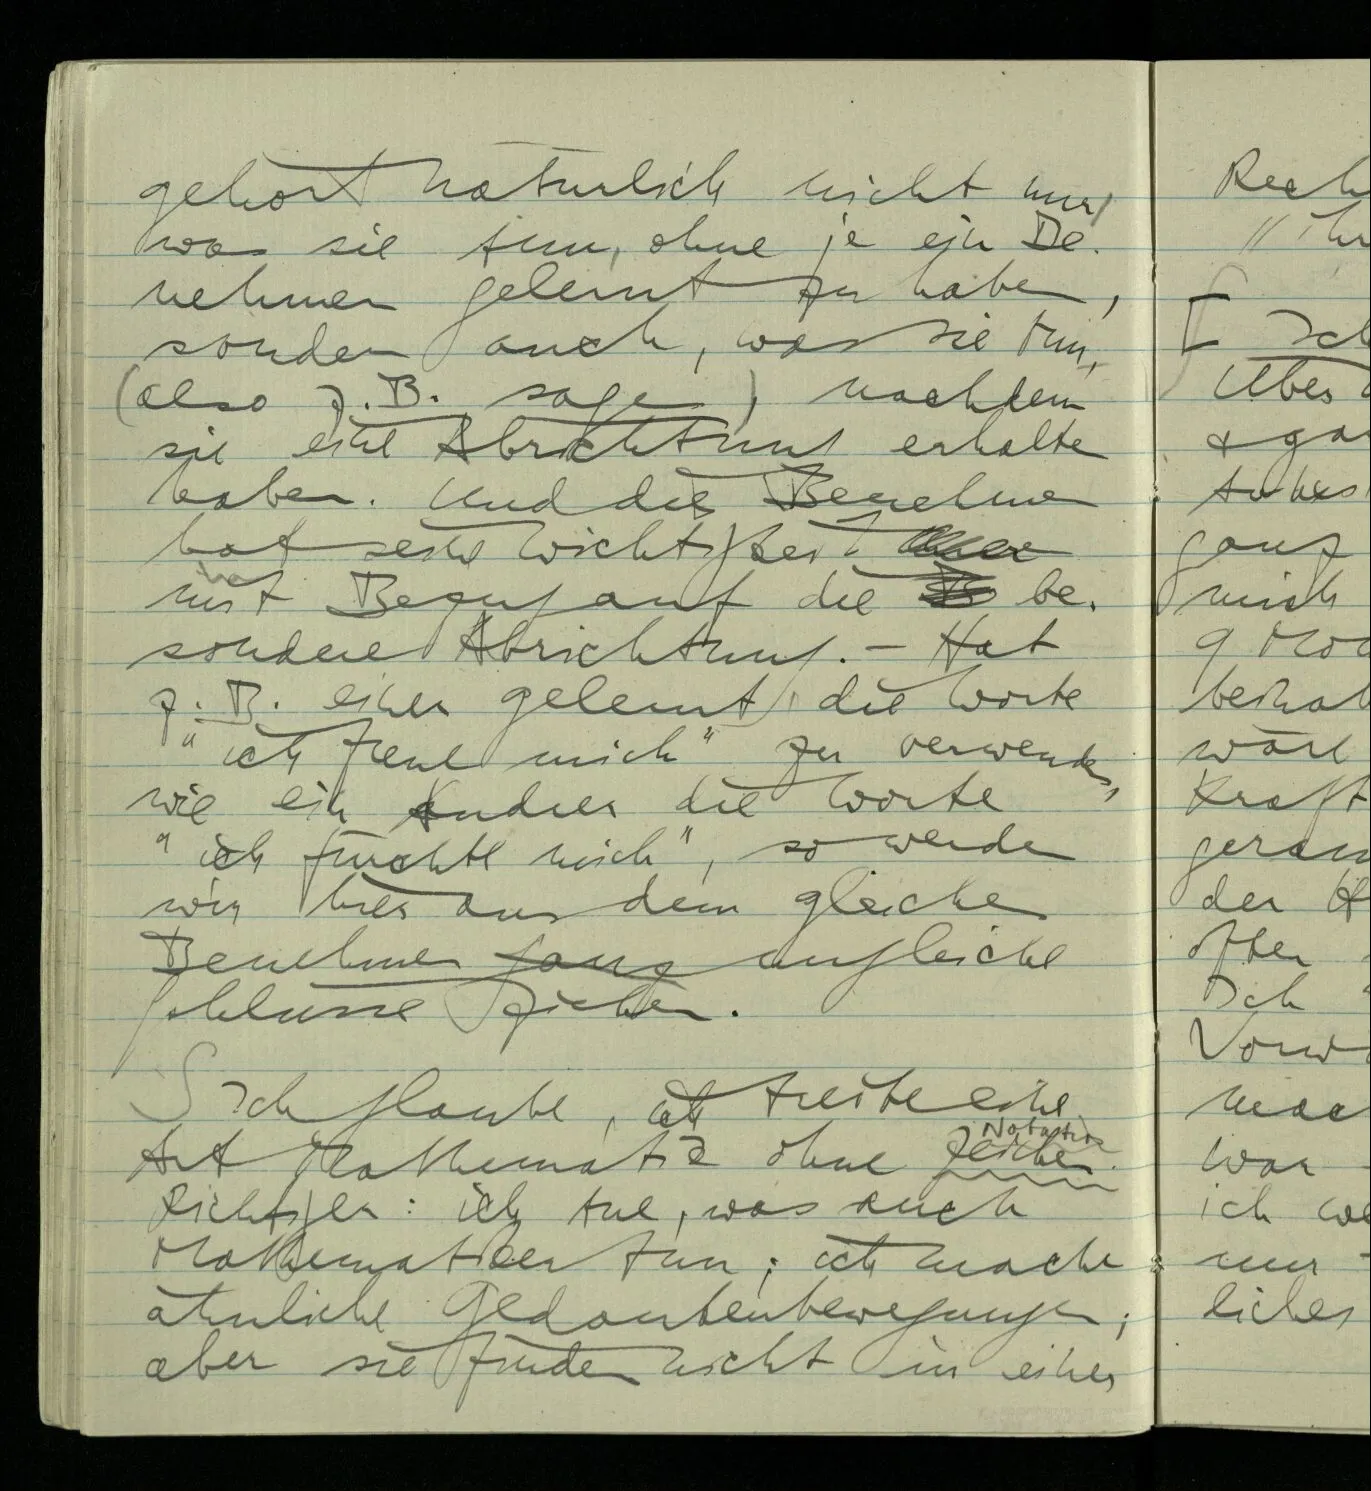 gehört natürlich nicht nur,
was sie tun, ohne je ein Be-
nehmen gelernt zu haben,
sondern auch, was sie tun,
(also z.B. sagen) nachdem
sie eine Abrichtung erhalten
haben. Und dies Benehmen
hat seine Wichtigkeit
mit Bezug auf die be-
sondere Abrichtung. – Hat
z.B. einer gelernt, die Worte
"ich freue mich" zu verwenden,
wie ein Andrer die Worte
"ich fürchte mich", so werden
wir hier aus dem gleichen
Benehmen ganz ungleiche
Schlüsse ziehen.
S Ich glaube, ich treibe eine
Notation
Art Mathematik ohne Zeichen.
Richtiger: ich tue, was auch
Mathematiker tun; ich mache
ähnliche Gedankenbewegungen;
aber sie finden nicht in einer
Rech
"ihr
[ Ich
Über
& ga
ganz
mich
9 Mo
beina
wäre
Kraft
der
öfter
Ich
Vorw
mac
war
ich we
nur
liches